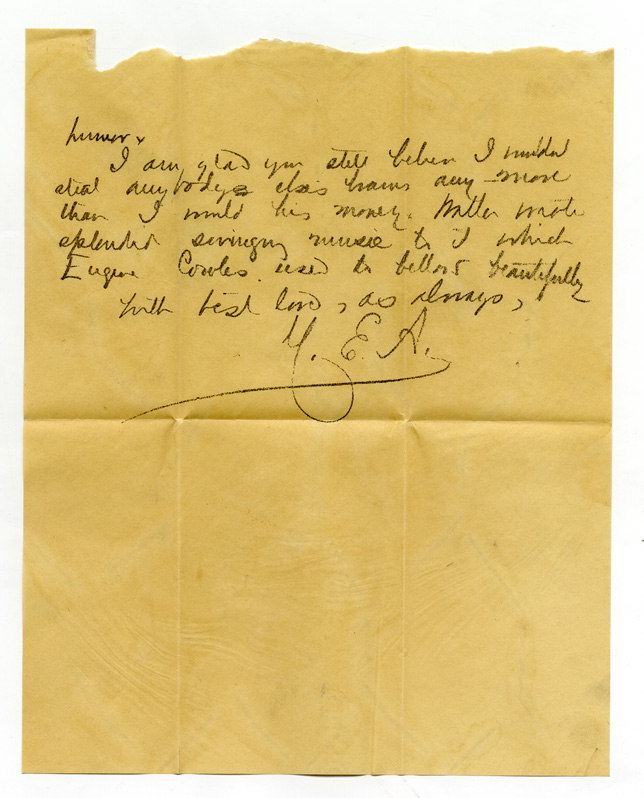 humor.
I am glad you still believe I wouldn't
steal anybody else's brains any more
than I would his money. Waller wrote
splendid swinging music to it which
Eugene Cowles used to bellow beautifully
With best love, as always,
Y. E. A.